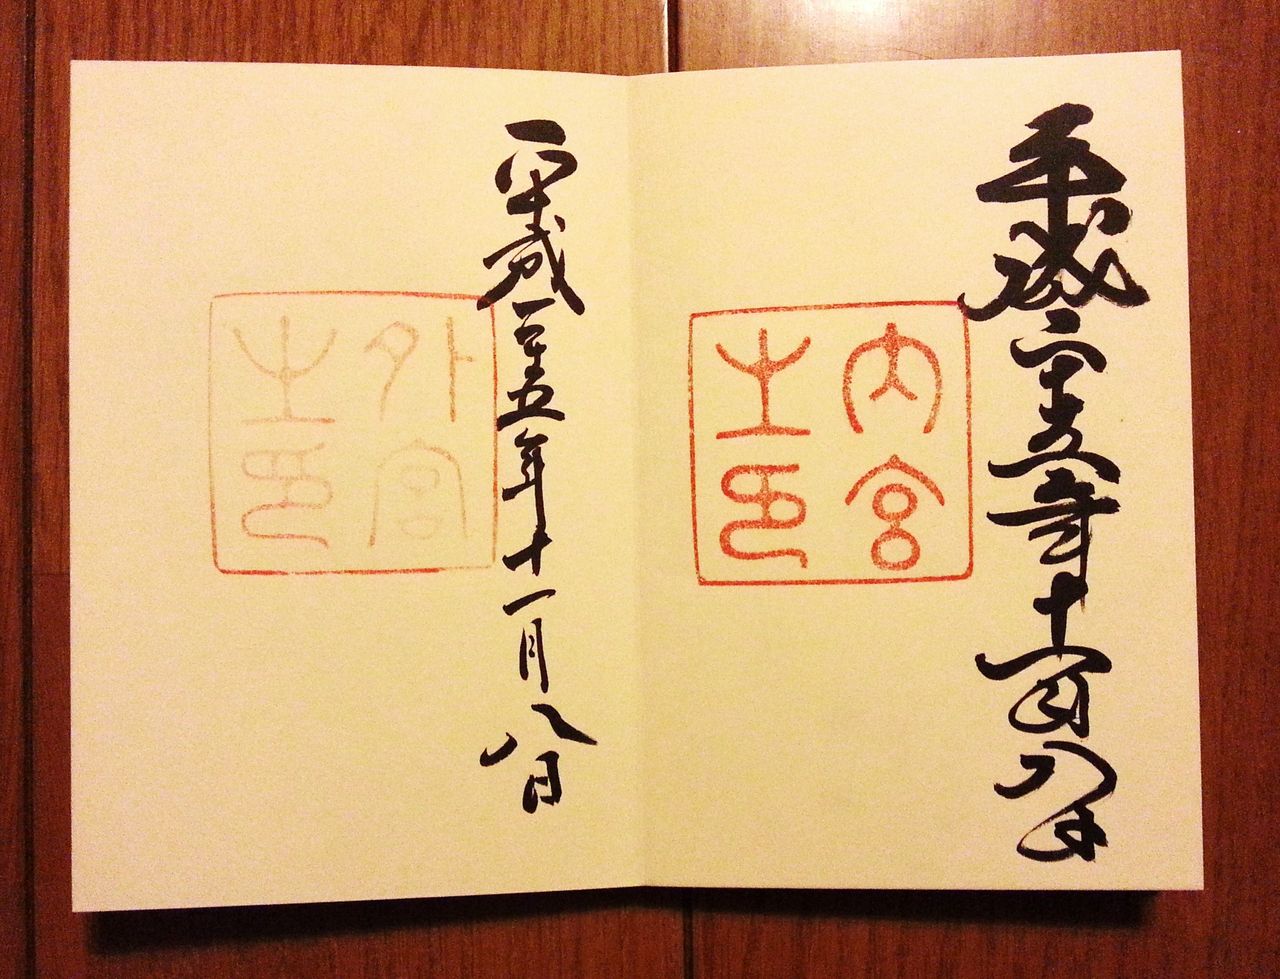 平成二十五年十一月八日
内宮
之印
平成二十五年十一月八日
外宮
之印